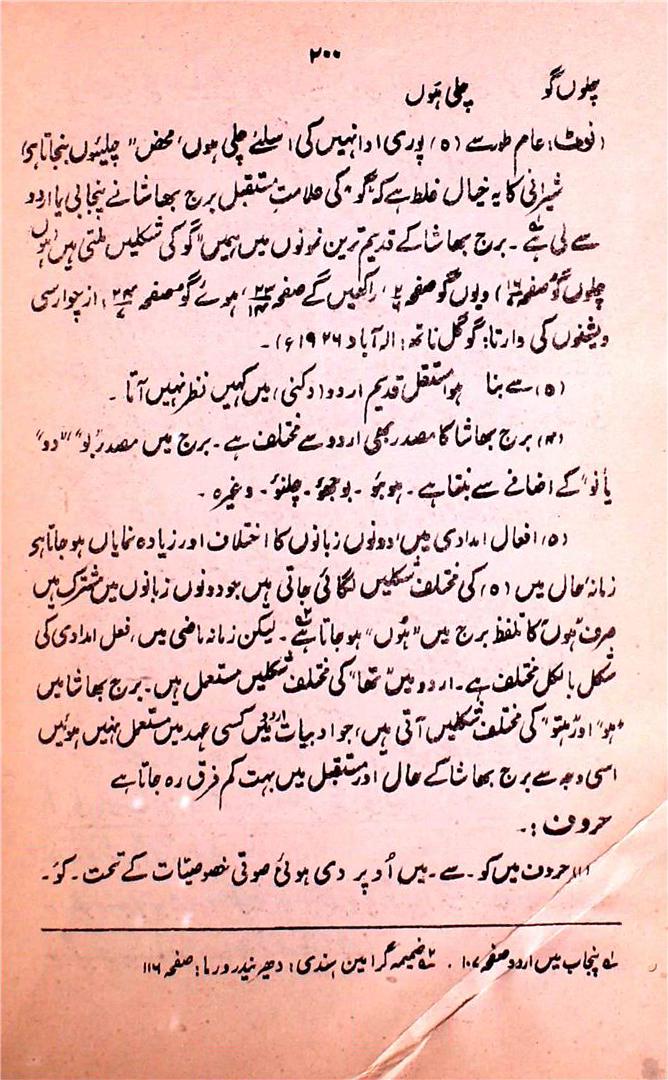 ۲۰۰
چلوں گو چلی ہُوں
(نوٹ: عام طور سے (ہ) پوری ادا نہیں کی؛ اسلئے چلی ہوں، محض" چلیئوں بنجاتا ہی)
شیرانی کا یہ خیال غلط ہے کہ "گو" کی علامتِ مستقبل برج بھاشا نے پنجابی یا اردو
سے لی ہے ۱؎۔ برج بھاشا کے قدیم ترین نمونوں میں ہمیں "گو کی شکلیں ملتی ہیں (ہوں
چلوں گو صفحہ) دیوں گو صفحہ، راکھیں گے صفحہ، ہوئے گو صفحہ: از چوراسی
ویشنوں کی وارتا: گوکل ناتھ: الہ آباد ۱۹۲۶ء)۔
(ہ) سے بنا ہوا مستقبل قدیم اردو (دکنی) میں کہیں نظر نہیں آتا۔
(۴) برج بھاشا کا مصدر بھی اردو سے مختلف ہے۔ برج میں مصدر "بو" "دو"
یا "نو" کے اضافے سے بنتا ہے۔ ہوبو۔ بوجھو۔ چلنو۔ وغیرہ۔
(۵) افعال امدادی میں دونوں زبانوں کا اختلاف اور زیادہ نمایاں ہو جاتا ہی
زمانہ حال میں (ہ) کی مختلف شکلیں لگائی جاتی ہیں جو دونوں زبانوں میں مشترک ہیں
صرف "ہوں" کا تلفظ برج میں "ہُوں" ہو جاتا ہے ۲؎۔ لیکن زمانہ ماضی میں، فعل امدادی کی
شکل بالکل مختلف ہے۔ اردو میں "تھا" کی مختلف شکلیں مستعمل ہیں۔ برج بھاشا میں
"ہو" اور "ہتو" کی مختلف شکلیں آتی ہیں، جو ادبیات اردو میں کسی عہد میں مستعمل نہیں ہوئیں
اسی وجہ سے برج بھاشا کے حال اور مستقبل میں بہت کم فرق رہ جاتا ہے
حروف :۔
(۱) حروف میں کو۔ سے۔ میں اُوپر دی ہوئی صوتی خصوصیّات کے تحت۔ کوَ۔
۱؎ پنجاب میں اردو صفحہ ۱۰۷۔ ۲؎ ضمیمہ گرامین ہندی: دھیریندر ورما: صفحہ ۱۱۶